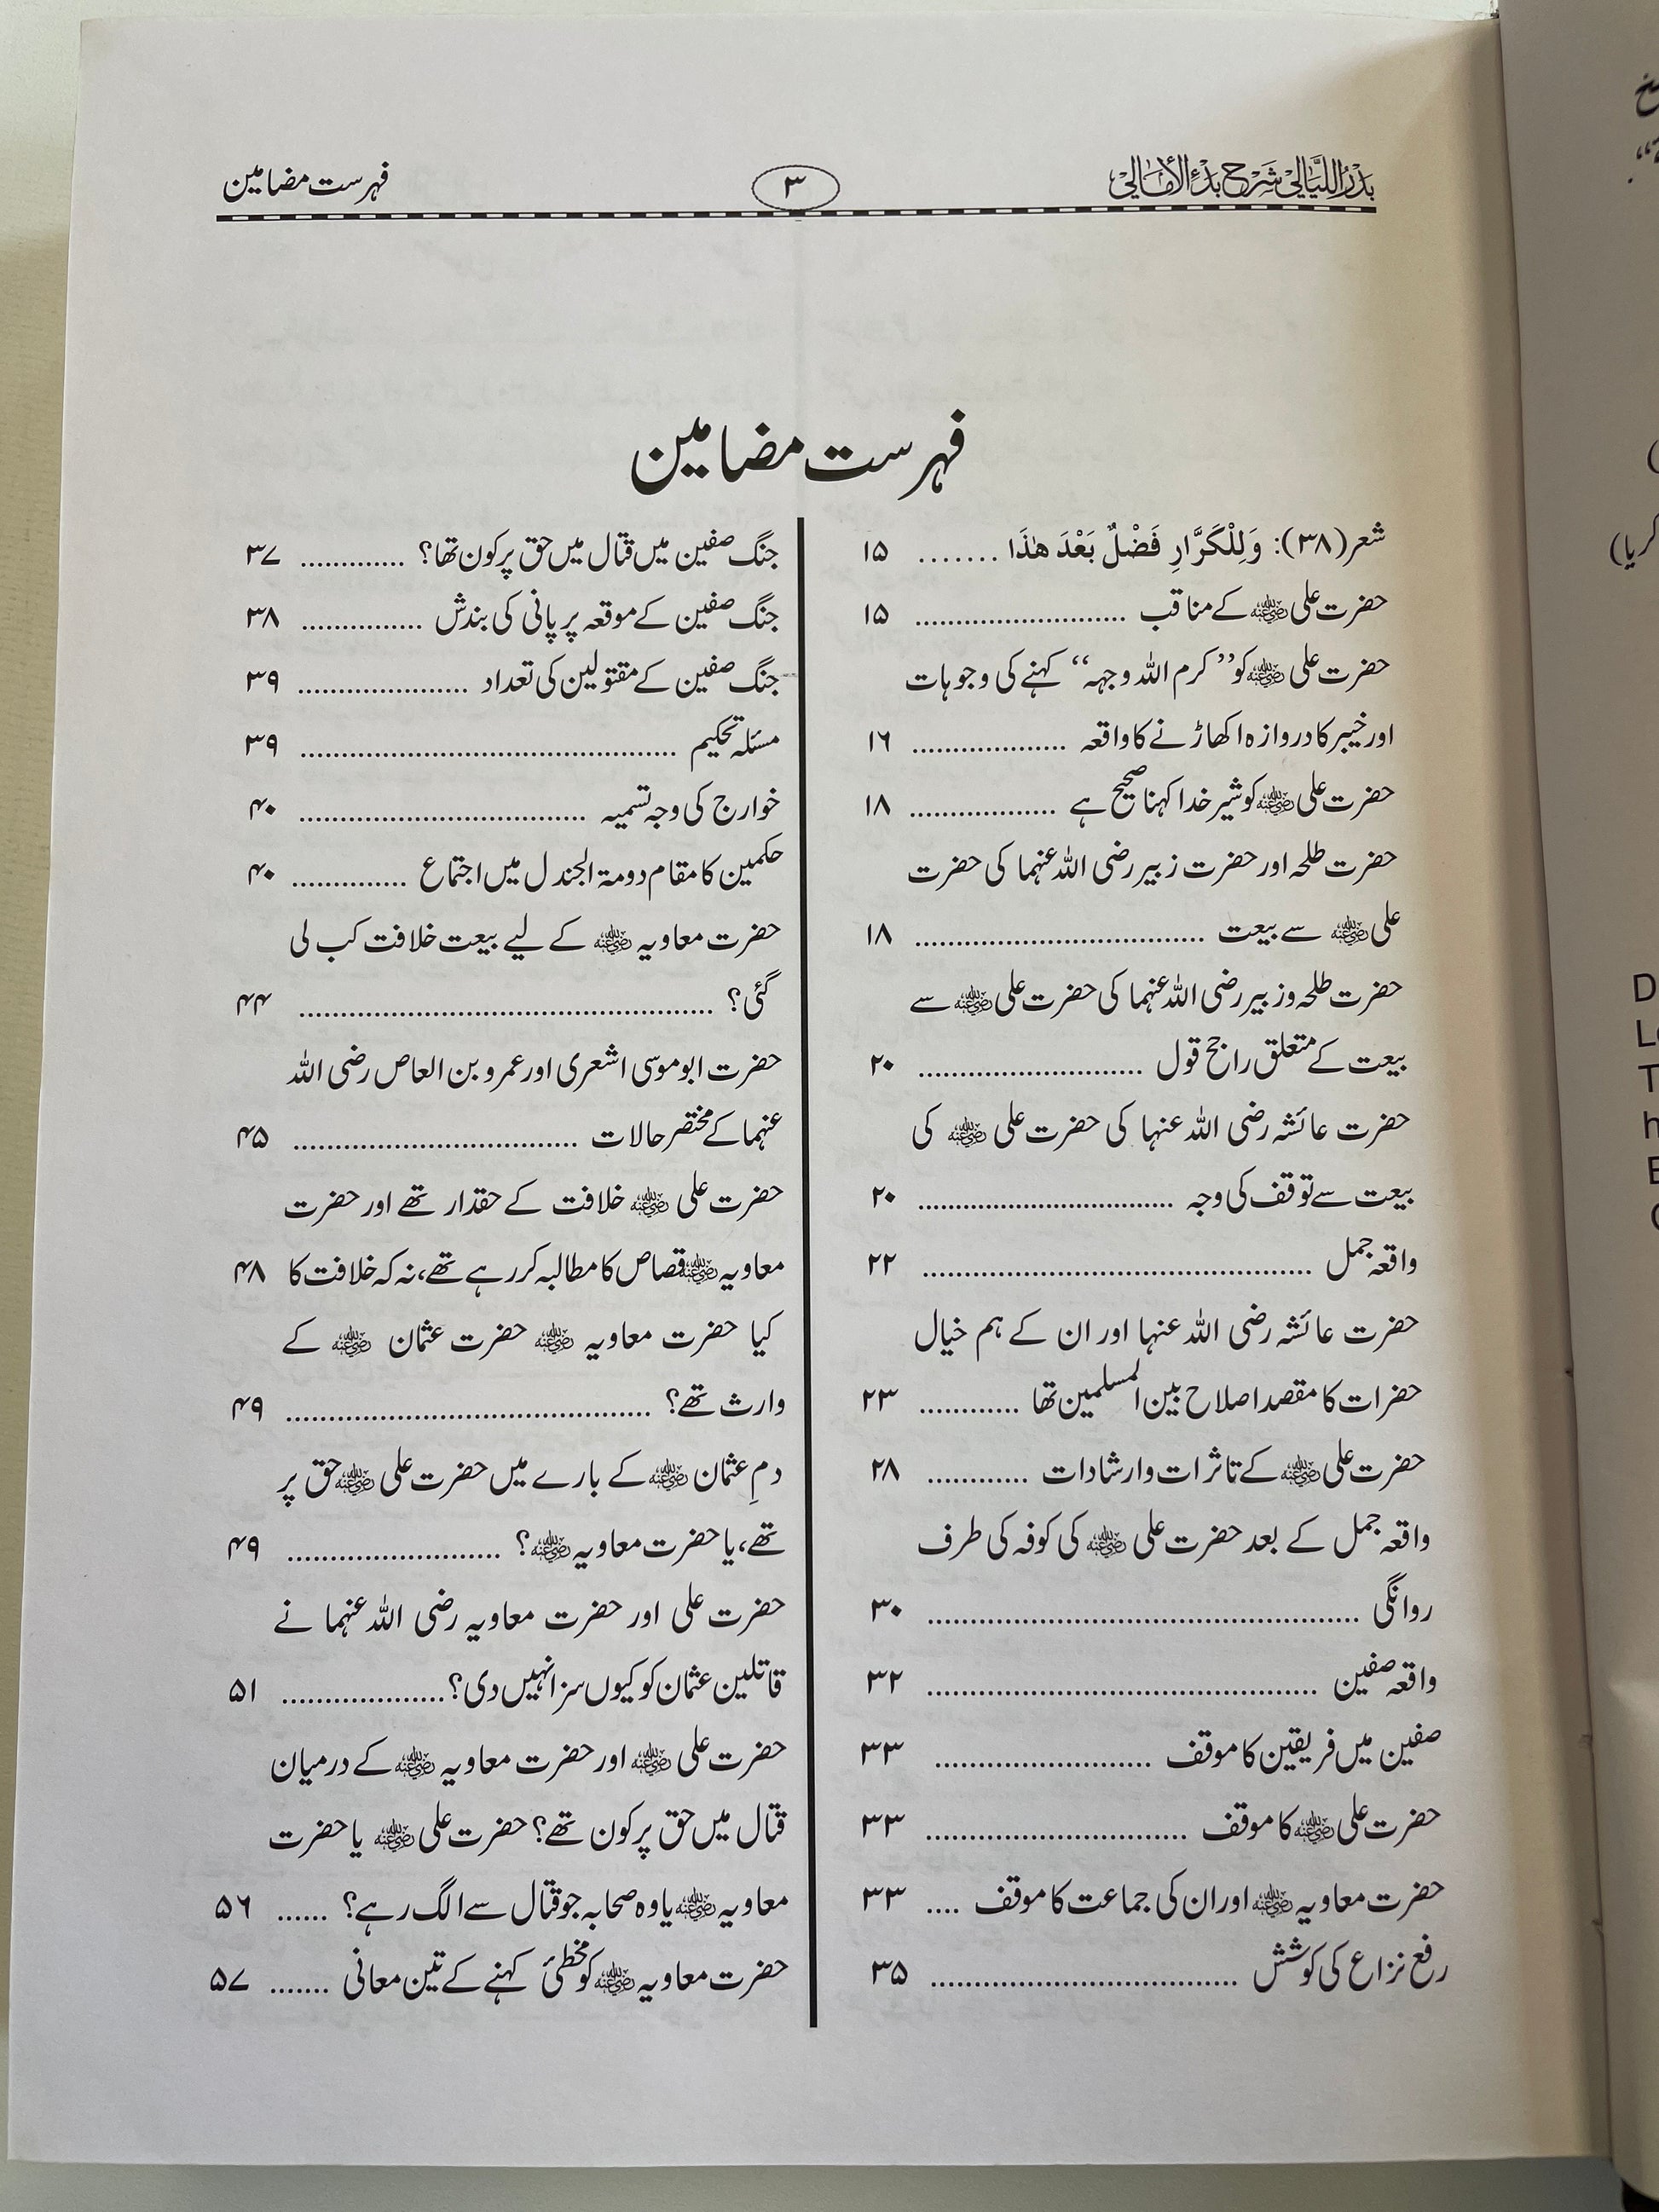 بَدْرُ اللَّيَالِي شَرْح بَدْءِ الأَمَالِي
۳
فہرست مضامین
فہرست مضامین
شعر(۳۸): وَلِلْكَرَّارِ فَضْلٌ بَعْدَ هٰذَا ....... ۱۵
حضرت علی ؓ کے مناقب .......................... ۱۵
حضرت علی ؓ کو ’’کرم اللہ وجہہ‘‘ کہنے کی وجوہات
اور خیبر کا دروازہ اکھاڑنے کا واقعہ ................... ۱۶
حضرت علی ؓ کو شیر خدا کہنا صحیح ہے .................. ۱۸
حضرت طلحہ اور حضرت زبیر رضی اللہ عنہما کی حضرت
علی ؓ سے بیعت ................................... ۱۸
حضرت طلحہ وزبیر رضی اللہ عنہما کی حضرت علی ؓ سے
بیعت کے متعلق راجح قول ........................... ۲۰
حضرت عائشہ رضی اللہ عنہا کی حضرت علی ؓ کی
بیعت سے توقف کی وجہ ............................... ۲۰
واقعہ جمل ............................................... ۲۲
حضرت عائشہ رضی اللہ عنہا اور ان کے ہم خیال
حضرات کا مقصد اصلاح بین المسلمین تھا ............ ۲۳
حضرت علی ؓ کے تاثرات وارشادات ............ ۲۸
واقعہ جمل کے بعد حضرت علی ؓ کی کوفہ کی طرف
روانگی .................................................... ۳۰
واقعہ صفین ............................................... ۳۲
صفین میں فریقین کا موقف .......................... ۳۳
حضرت علی ؓ کا موقف ................................ ۳۳
حضرت معاویہ ؓ اور ان کی جماعت کا موقف .... ۳۳
رفع نزاع کی کوشش ..................................... ۳۵
جنگ صفین میں قتال میں حق پر کون تھا؟ ............. ۳۷
جنگ صفین کے موقعہ پر پانی کی بندش ............... ۳۸
جنگ صفین کے مقتولین کی تعداد ..................... ۳۹
مسئلہ تحکیم .............................................. ۳۹
خوارج کی وجہ تسمیہ ................................... ۴۰
حکمین کا مقام دومۃ الجندل میں اجتماع .............. ۴۰
حضرت معاویہ ؓ کے لیے بیعت خلافت کب لی
گئی؟ .................................................. ۴۴
حضرت ابوموسی اشعری اور عمرو بن العاص رضی اللہ
عنہما کے مختصر حالات .................................. ۴۵
حضرت علی ؓ خلافت کے حقدار تھے اور حضرت
معاویہ ؓ قصاص کا مطالبہ کررہے تھے، نہ کہ خلافت کا ۴۸
کیا حضرت معاویہ ؓ حضرت عثمان ؓ کے
وارث تھے؟ ............................................ ۴۹
دمِ عثمان ؓ کے بارے میں حضرت علی ؓ حق پر
تھے، یا حضرت معاویہ ؓ؟ ......................... ۴۹
حضرت علی اور حضرت معاویہ رضی اللہ عنہما نے
قاتلین عثمان کو کیوں سزا نہیں دی؟ ................... ۵۱
حضرت علی ؓ اور حضرت معاویہ ؓ کے درمیان
قتال میں حق پر کون تھے؟ حضرت علی ؓ یا حضرت
معاویہ ؓ یا وہ صحابہ جو قتال سے الگ رہے؟ ...... ۵۶
حضرت معاویہ ؓ کو مخطئ کہنے کے تین معانی ....... ۵۷